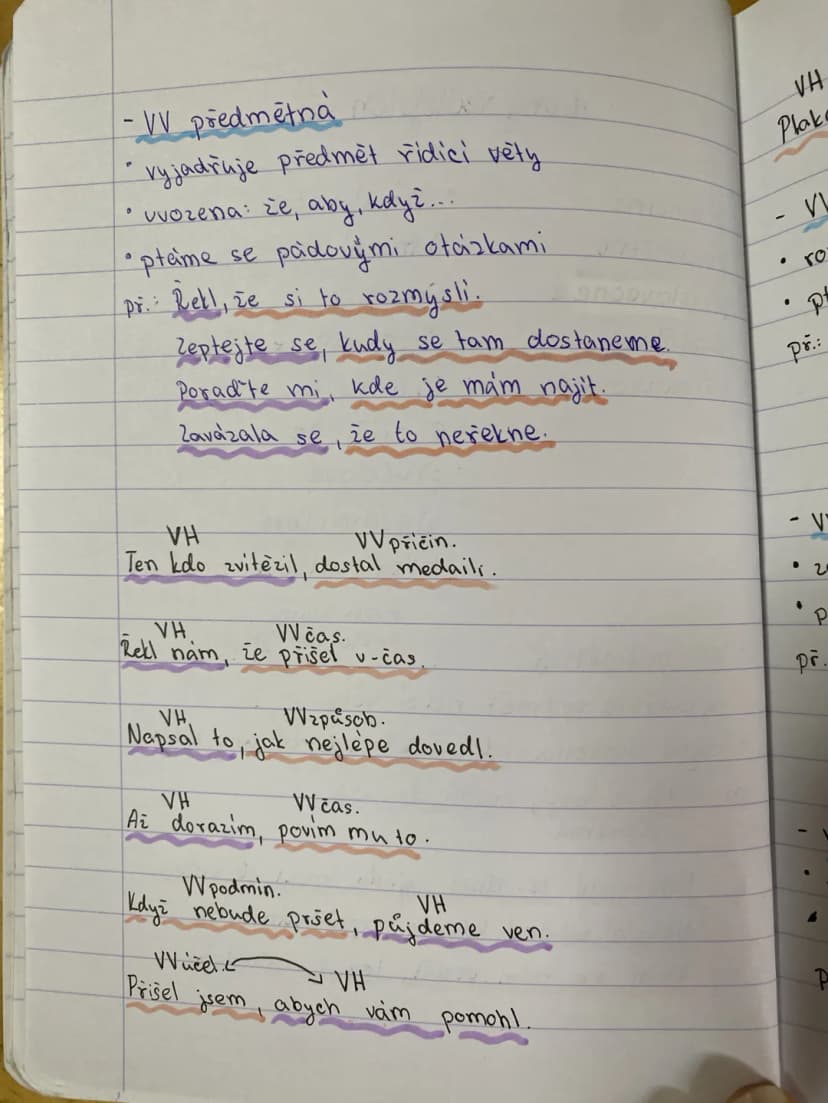 - VV předmětná
• vyjadřuje předmět řídící věty
• uvozena: že, aby, když...
• ptáme se pádovými otázkami
př.: Řekl, že si to rozmyslí.
Zeptejte se, kudy se tam dostaneme.
Poraďte mi, kde je mám najít.
Zavázala se, že to neřekne.
VH VV příčin.
Ten kdo zvítězil, dostal medaili.
VH VV čas.
Řekl nám, že přišel v-čas.
VH VV způsob.
Napsal to, jak nejlépe dovedl.
VH VV čas.
Až dorazím, povím mu to.
VV podmin. VH
Když nebude pršet, půjdeme ven.
VV účel. VH
Přišel jsem, abych vám pomohl.
VH
- V
• ro
• pt
př.:
- V
• p
př.